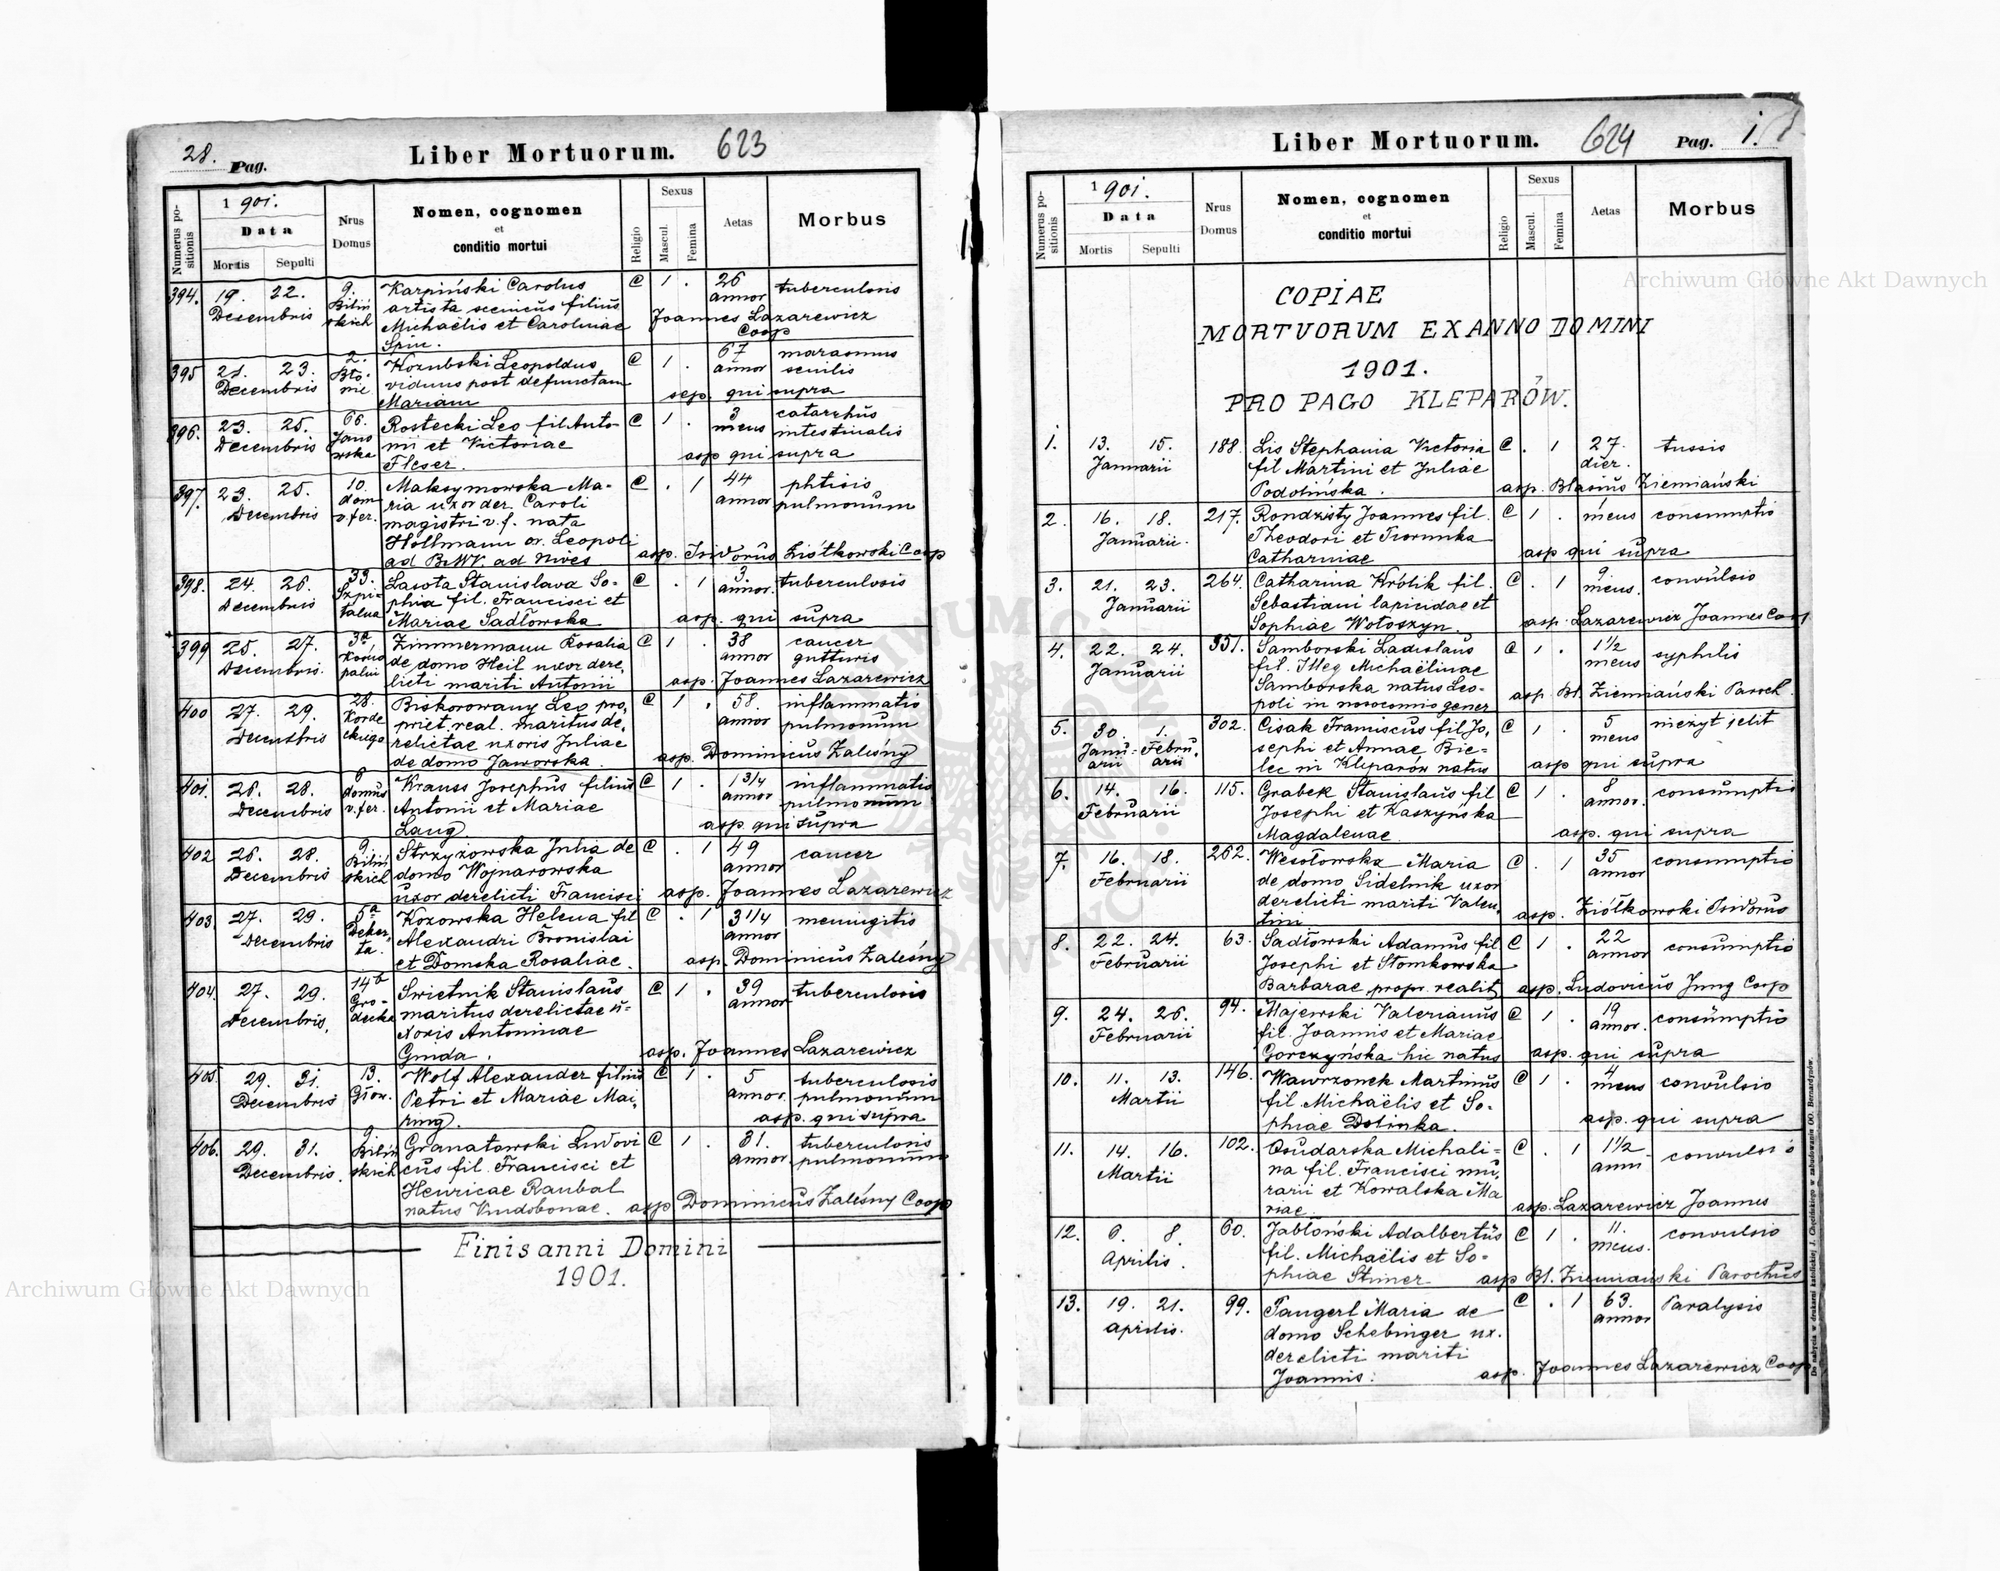 28. Pag. Liber Mortuorum. 623
Numerus positionis
1901.
Data
Mortis Sepulti
Nrus Domus
Nomen, cognomen
et
conditio mortui
Religio
Sexus
Mascul. Femina
Aetas
Morbus
394. 19. 22. 9. Karpiński Carolus C 1 . 26 tuberculosis
Decembris Biliń artista scenicus filius annor
skich Michaëlis et Carolinae Joannes Lazarewicz
Spiu. Coop
395 21. 23. 2. Kozubski Leopoldus C 1 . 67 marasmus
Decembris Bło viduus post defunctam annor senilis
nie Mariam sep. qui supra
396. 23. 25. 66. Rostecki Leo fil Anto- C 1 . 3 catarrhus
Decembris Jano nii et Victoriae mens intestinalis
wska Fleser. asp qui supra
397. 23. 25. 10. Maksymowska Ma- C . 1 44 phtisis
Decembris dom ria uxor der. Caroli annor pulmonum
v. fer. magistri v. f. nata
Hollmann or. Leopoli
ad B.M.V. ad Nives asp. Isidorus Ziółkowski Coop
398. 24. 26. 33. Lasota Stanislava So- C . 1 3. tuberculosis
Decembris Szpi- phia fil. Francisci et annor.
talna Mariae Sadłowska asp. qui supra
399 25. 27. 3a Zimmermann Rosalia C 1 . 38 cancer
Decembris. de domo Heil uxor dere- annor gutturis
licti mariti Antonii asp. Joannes Lazarewicz
400 27. 29. 28. Biskorowany Leo pro- C 1 . 58. inflammatio
Decembris Korde priet. real. maritus de- annor pulmonum
ckiego relictae uxoris Juliae asp. Dominicus Zaleśny
de domo Jaworska.
401. 26. 28. 6 Krauss Josephus filius C 1 . 1 3/4 inflammatio
Decembris domus Antonii et Mariae annor pulmonum
v. fer. Laug asp. qui supra
402 26. 28. 9. Strzyżowska Julia de C . 1 49 cancer
Decembris Biliń domo Wojnarowska annor
skich uxor derelicti Francisci asp. Joannes Lazarewicz
403. 27. 29. 5a Kozowska Helena fil C . 1 3 1/4 meningitis
Decembris Deker- Alexandri Bronislai annor
ta. et Domska Rosaliae. asp. Dominicus Zaleśny
404. 27. 29. 14b Swietnik Stanislaus C 1 . 39 tuberculosis
Decembris. Gro- maritus derelictae u- annor
decka xoris Antoninae
Gmda. asp. Joannes Lazarewicz
405. 29. 31. 13. Wolf Alexander filius C 1 . 5 tuberculosis
Decembris Głow. Petri et Mariae Mai- annor. pulmonum
ring. asp. qui supra
406. 29. 31. 9 Granatowski Ludovi C 1 . 31. tuberculosis
Decembris. Biliń cus fil. Francisci et annor pulmonum
skich Henricae Raubal
natus Vindobonae. asp Dominicus Zaleśny Coop
Finis anni Domini
1901.
Liber Mortuorum. 624 Pag. 1.
Numerus positionis
1901.
Data
Mortis Sepulti
Nrus Domus
Nomen, cognomen
et
conditio mortui
Religio
Sexus
Mascul. Femina
Aetas
Morbus
COPIAE
MORTUORUM EX ANNO DOMINI
1901.
PRO PAGO KLEPARÓW.
1. 13. 15. 188. Lis Stephania Victoria C . 1 27. tussis
Januarii fil Martini et Juliae dier.
Podolińska. asp. Blasius Ziemiański
2. 16. 18. 217. Rondzisty Joannes fil. C 1 . mens consumptio
Januarii. Theodori et
Catharinae asp qui supra
3. 21. 23. 264. Catharina Królik fil. C . 1 9 convulsio
Januarii Sebastiani lapicidae et mens.
Sophiae Wołoszyn. asp. Lazarewicz Joannes Coop
4. 22. 24. 351. Samborski Ladislaus C 1 . 1 1/2 syphilis
Januarii fil. Illeg Michaëlinae mens
Samborska natus Leo-
poli in nosocomio gener asp Bl. Ziemiański Paroch.
5. 30. 1. 302. Cisak Franciscus fil Jo- C 1 . 5 nieżyt jelit
Janu- Febru- sephi et Annae Bie- mens
arii arii lec in Kleparów natus asp qui supra
6. 14. 16. 115. Grabek Stanislaus fil C 1 . 8 consumptio
Februarii Josephi et Kaszyńska annor.
Magdalenae asp. qui supra
7. 16. 18. 262. Wesołowska Maria C . 1 35 consumptio
Februarii de domo Sidelnik uxor annor
derelicti mariti Valen-
tini asp. Ziółkowski Isidorus
8. 22. 24. 63. Sadłowski Adamus fil C 1 . 22 consumptio
Februarii Josephi et Słomkowska annor
Barbarae propr. realit asp. Ludovicus Jung Coop
9. 24. 26. 94. Majewski Valerianus C 1 . 19 consumptio
Februarii fil. Joannis et Mariae annor.
Gorczyńska hic natus asp. qui supra
10. 11. 13. 146. Wawrzonek Martinus C 1 . 4 convulsio
Martii fil. Michaëlis et So- mens
phiae Dolinka. asp. qui supra
11. 14. 16. 102. Osudarska Michali- C . 1 1 1/2 convulsio
Martii na fil. Francisci mu- anni
rarii et Kowalska Ma
riae. asp. Lazarewicz Joannes
12. 6. 8. 60. Jabłoński Adalbertus C 1 . 11. convulsio
Aprilis. fil. Michaëlis et So- mens.
phiae Stiner asp Bl. Ziemiański Parochus
13. 19. 21. 99. Taugerl Maria de C . 1 63. Paralysis
Aprilis. domo Schebinger ux. annor
derelicti mariti
Joannis. asp. Joannes Lazarewicz Coop
Do nabycia w drukarni katolickiej J. Chęcińskiego w zabudowaniu OO. Bernardynów.
Archiwum Główne Akt Dawnych
Archiwum Główne Akt Dawnych